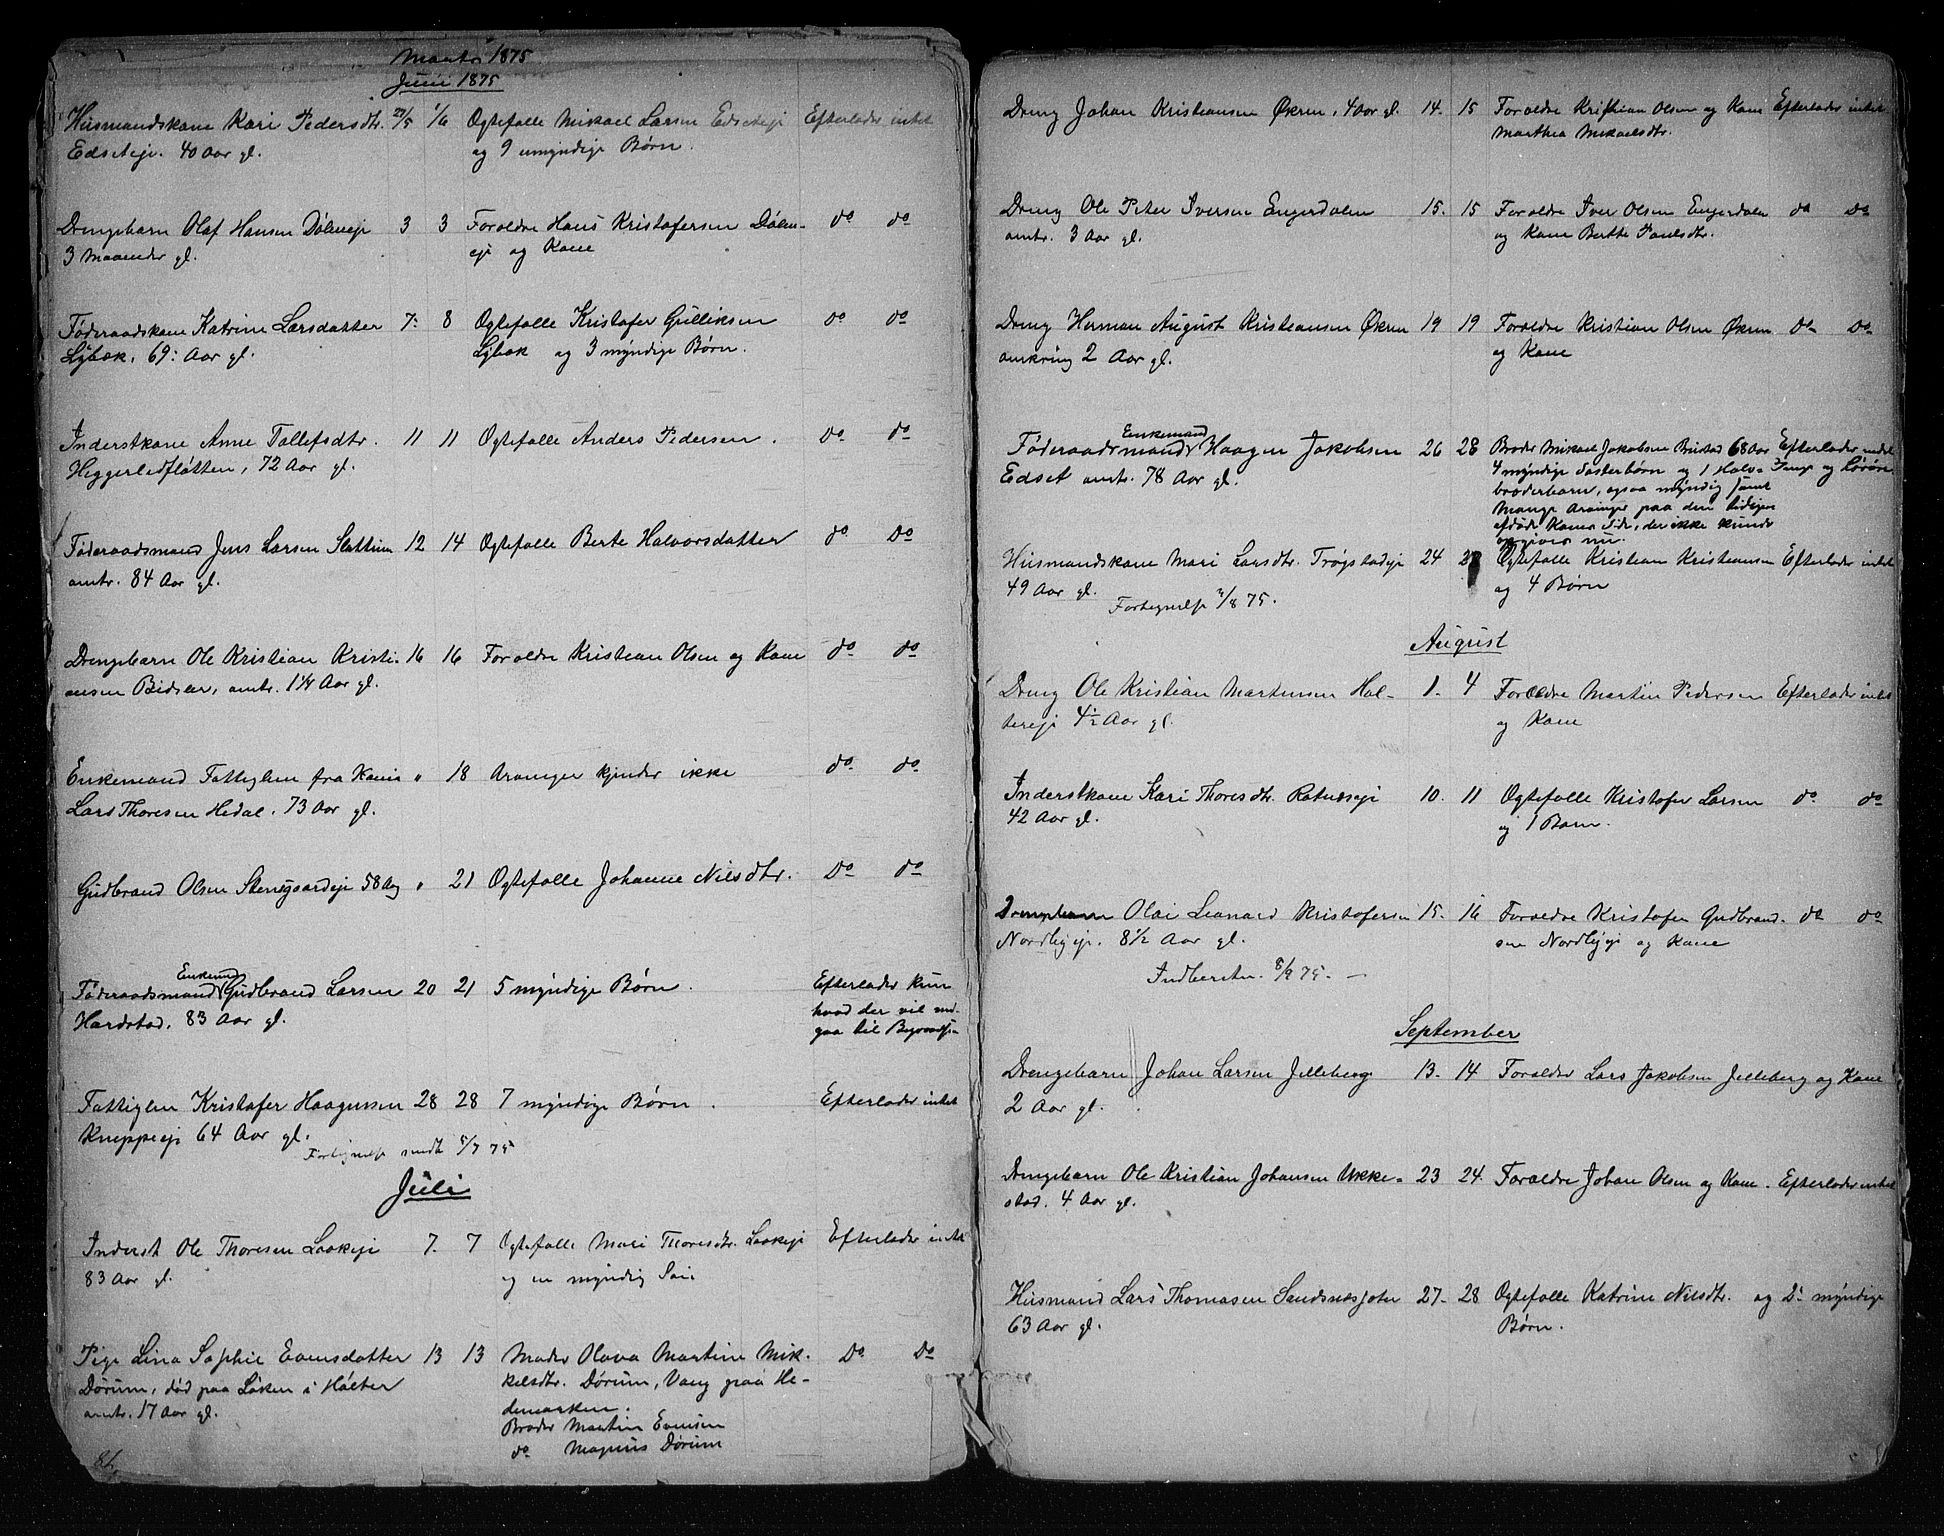 Marts 1875
Juni 1875
Husmandskone Kari Pedersdtr. 29/5 1/6 Ægtefælle Mikael Larsen Edseteje Efterlader intet
Edseteje. 40 Aar gl. og 9 umyndige Børn.
Drengebarn Olaf Hansen Døleneje 3 3 Forældre Hans Kristofersen Dølen- do do
3 Maaneder gl. eje og Kone
Føderaadskone Katrine Larsdatter 7. 8 Ægtefælle Kristofer Gulliksen do do
Lybæk. 69: Aar gl. Lybæk og 3 myndige Børn.
Inderstkone Anne Tollefsdtr. 11 11 Ægtefælle Anders Pedersen. Do do
Heggerledfløtten, 72 Aar gl.
Føderaadsmand Jens Larsen Slattum 12 14 Ægtefælle Berte Halvorsdatter do Do
omtr. 84 Aar gl.
Drengebarn Ole Kristian Kristi- 16 16 Forældre Kristian Olsen og Kone do do
ansen Bidsler, omtr. 1 1/4 Aar gl.
Enkemand Fattiglem fra " 18 Arvinger kjendes ikke do. do.
Lars Thoresen Hedal. 73 Aar gl.
Gudbrand Olsen Stensgaardeje 58 Aar " 21 Ægtefælle Johanne Nilsdtr. Do do
Enkemd
Føderaadsmand Gudbrand Larsen 20 21 5 myndige Børn. Efterlader kun
Hardstad. 83 Aar gl. hvad der vil med-
gaa til Begravelse-
Fattiglem Kristofer Haagensen 28 28 7 myndige Børn. Efterlader intet
Kneppeeje 64 Aar gl.
Fortegnelse sendt 5/7 75
Juli
Inderst Ole Thoresen Laakeje 7. 7 Ægtefælle Mari Thoresdtr. Laakeje Efterlader intet
83 Aar gl. og en myndig Søn
Pige Lina Sophie Evensdatter 13 13 Moder Olava Martine Mik- Do Do
Dørum, død paa Løken i Holter kelsdtr. Dørum, Vang paa He-
omtr. 17 Aar gl. demarken.
Broder Martin Evensen
do Magnus Dørum
Dreng Johan Kristiansen Økern, 4 Aar gl. 14. 15 Forældre Kristian Olsen og Kone Efterlader intet
Marthea Mikaelsdtr.
Dreng Ole Peter Iversen Engerdalen 15. 15 Forældre Iver Olsen Engerdalen do Do
omtr. 3 Aar gl. og Kone Berthe Paulsdtr.
Dreng Herman August Kristiansen Økern 19 19 Forældre Kristian Olsen Økern Do Do
omkring 2 Aar gl. og Kone
Enkemand
Føderaadsmand Haagen Jakobsen 26 28 Broder Mikael Jakobsen 68 Aar Efterlader
Edset omtr. 78 Aar gl. 4 myndige Søsterbørn og 1 Halv- og Løsøre
broderbarn, ogsaa myndig samt
Mange Arvinger paa den tidligere
afdøde Kones Side, der ikke kunde
opgives nu.
Husmandskone Mari Larsdtr. Trøgstadeje 24 Ægtefælle Kristian Kristiansen Efterlader intet
49 Aar gl. og 4 Børn
Fortegnelse 3/8 75.
August
Dreng Ole Kristian Martinsen Hol- 1. 4 Forældre Martin Pedersen Efterlader intet
tereje 4½ Aar gl. og Kone
Inderstkone Kari Thoresdtr. Ratnæseje 10. 11 Ægtefælle Kristofer Larsen do do
42 Aar gl. og 1 Barn.
Drengebarn Olai Leonard Kristofersen 15. 16 Forældre Kristofer Gudbrand- do do
Nordlyeje. 8½ Aar gl. sen Nordlyeje og Kone
Indberetn. 8/9 75. -
September
Drengebarn Johan Larsen Jelleberg 13. 14 Forældre Lars Jakobsen Jelleberg og Kone
2 Aar gl.
Drengebarn Ole Kristian Johansen Ukke- 23 24. Forældre Johan Olsen og Kone. Efterlader intet
stad. 4 Aar gl.
Husmand Lars Thomasen Sandsnæsjotet 27- 28 Ægtefælle Katrine Nilsdtr. og 2. myndige
63 Aar gl. Børn.